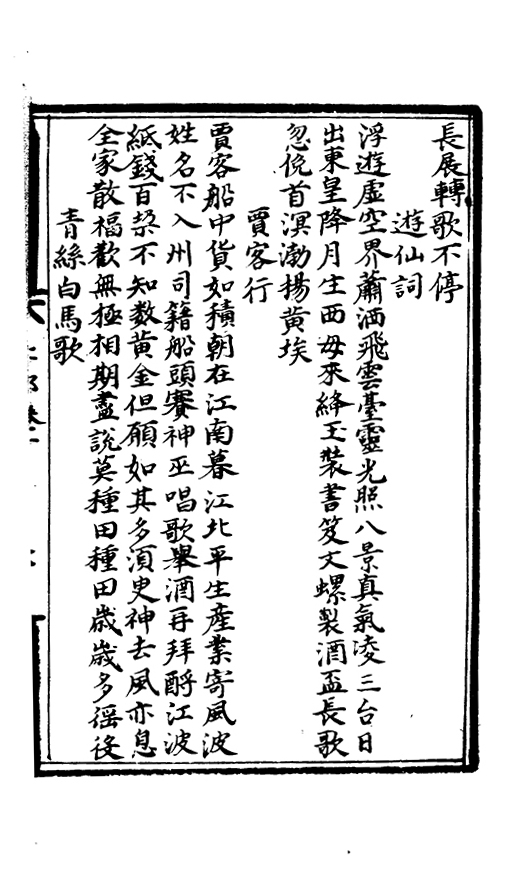 長展轉歌不停
遊仙詞
浮遊虛空界蕭洒飛雲臺靈光照八景真氣凌三台日
出東皇降月生西母來絳玉裝書笈文螺製酒盃長歌
忽俛首溟渤揚黃埃
賈客行
賈客船中貨如積朝在江南暮江北平生產業寄風波
姓名不入州司籍船頭賽神巫唱歌舉酒再拜酹江波
紙錢百挈不知數黃金但願如其多須臾神去風亦息
全家散福歡無極相期盡說莫種田種田歲歲多徭役
青絲白馬歌